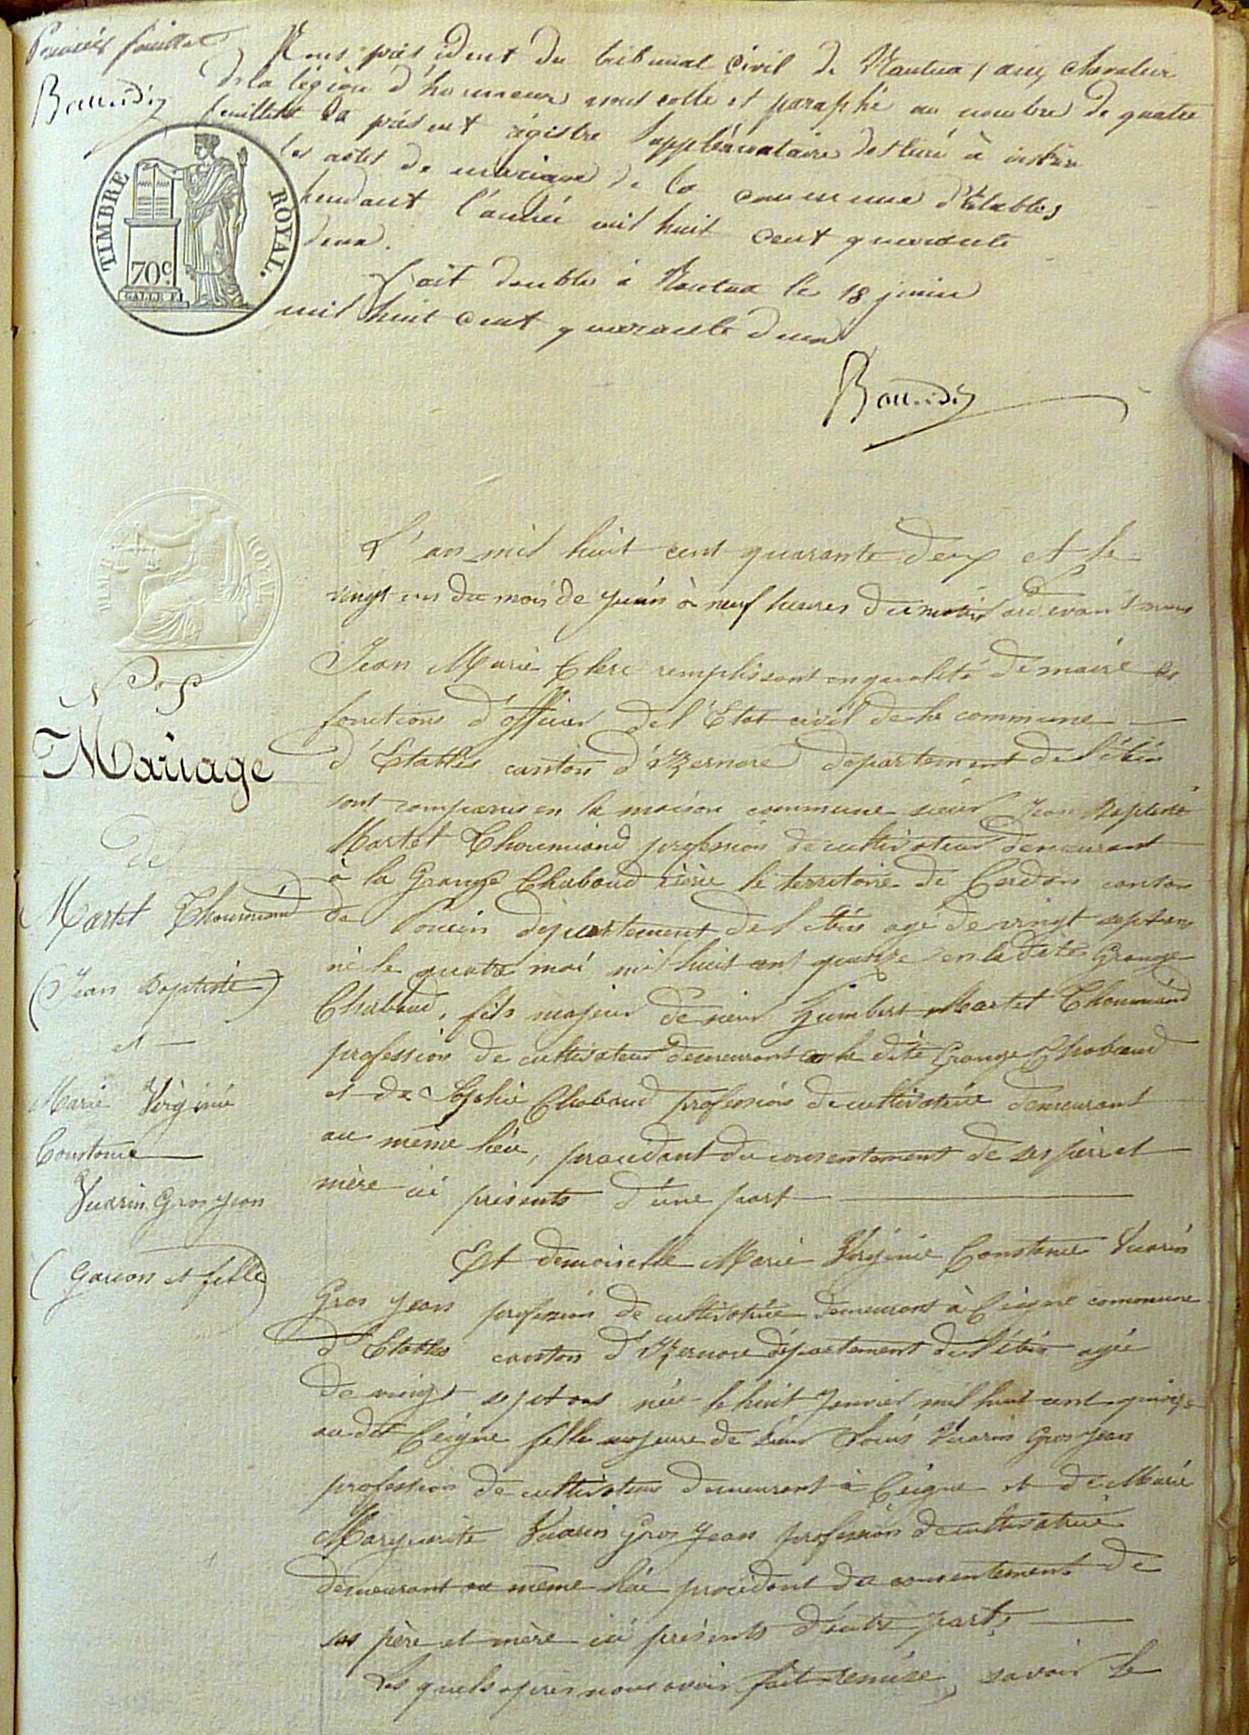 Premier feuillet
Nous président du tribunal civil de Nantua, ain, chevalier
de la légion d'honneur avons cotté et paraphé au nombre de quatre
feuillets le présent régistre supplémentaire destiné à inscrire
les actes de mariage de la commune d'Etables
pendant l'année mil huit cent quarante
deux.
Fait double à Nantua le 18 juin
mil huit cent quarante deux
TIMBRE ROYAL.
70c
L'an mil huit cent quarante deux et le
vingt un du mois de juin à neuf heures du matin pardevant nous
Jean Marie Clerc remplissant en qualité de maire les
fonctions d'officier de l'Etat civil de la commune
d'Etables canton d'Izernore département de l'Ain
sont comparus en la maison commune sieur Jean Baptiste
Martet Thoumiand profession de cultivateur demeurant
à la Grange Chabaud rière le territoire de Cerdon canton
de Poncin département de l'Ain agé de vingt sept ans
né le quatre mai mil huit cent quinze en la dite Grange
Chabaud, fils majeur de sieur Humbert Martet Thoumiand
profession de cultivateur demeurant à la dite Grange Chabaud
et de Sophie Chabaud profession de cultivatrice demeurant
au même lieu, procedant du consentement de ses père et
mère ici présents d'une part
Et demoiselle Marie Virginie Constance Vuarin
Gros Jean profession de cultivatrice demeurant à Ceigne commune
d'Etables canton d'Izernore département de l'Ain agée
de vingt sept ans née le huit Janvier mil huit cent quinze
au dit Ceigne fille majeure de sieur Louis Vuarin Gros Jean
profession de cultivateur demeurant à Ceigne et de Marie
Marguerite Vuarin Gros Jean profession de cultivatrice
demeurant au même lieu procédant du consentement de
ses père et mère ici présents d'autre part,
Les quels après nous avoir fait remise, savoir le
Mariage
de
Martet Thoumiand
(Jean Baptiste)
et
Marie Virginie
Constance
Vuarin Gros Jean
(Garçon et fille)